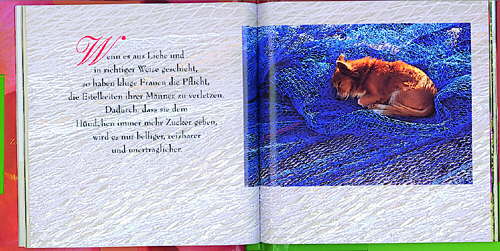 Wenn es aus Liebe und
in richtiger Weise geschieht,
so haben kluge Frauen die Pflicht,
die Eitelkeiten ihrer Männer zu verletzen.
Dadurch, dass sie dem
Hündchen immer mehr Zucker geben,
wird es nur belliger, reizbarer
und unerträglicher.